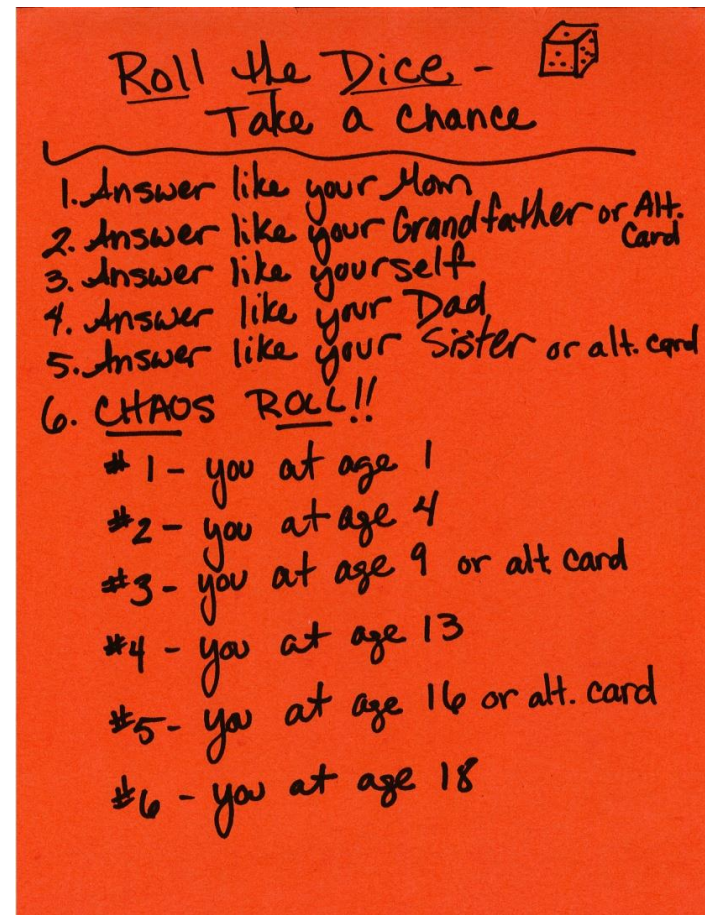 Roll the Dice -
Take a Chance
1. Answer like your Mom
2. Answer like your Grandfather or Alt. Card
3. Answer like yourself
4. Answer like your Dad
5. Answer like your Sister or alt. card
6. CHAOS ROLL!!
#1 - you at age 1
#2 - you at age 4
#3 - you at age 9 or alt card
#4 - you at age 13
#5 - you at age 16 or alt. card
#6 - you at age 18